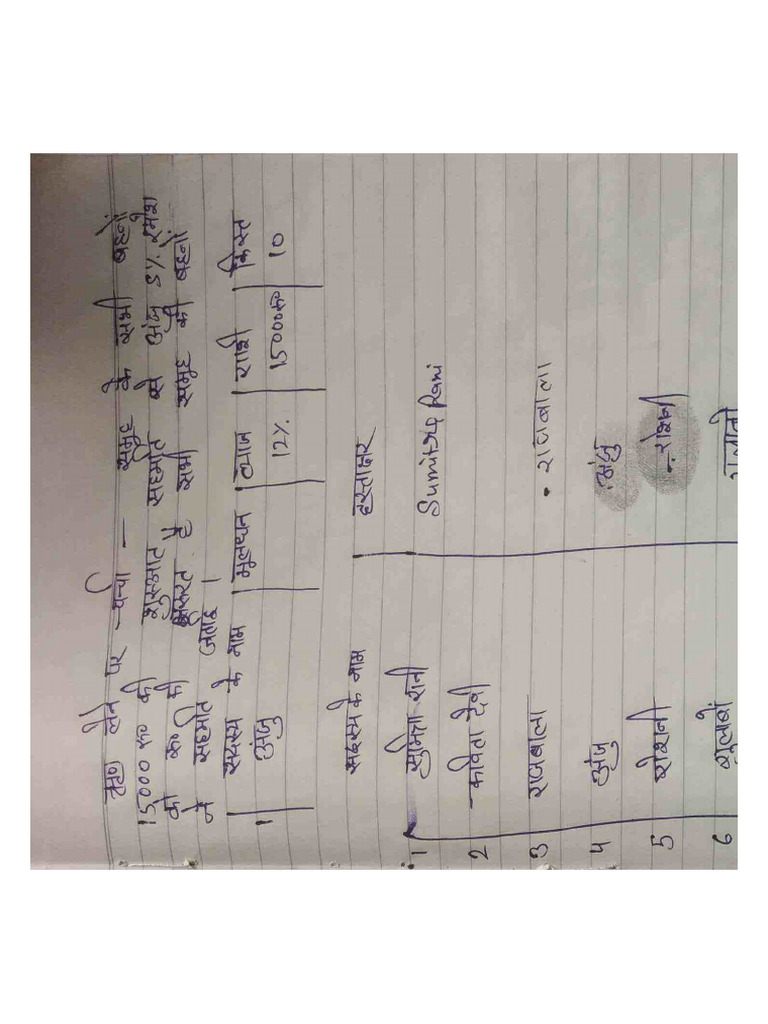 ऋण लेने पर चर्चा — समुह के सभी बहनों
15000 रू की शुरुआत सहमति से अंजु S/o रमेश
को रू की जरुरत है सभी समुह की बहनों
ने सहमति जताई ।
सदस्य के नाम | मूलधन | ब्याज | राशि | किस्त
1 अंजु 12% 15000रू 10
सदस्य के नाम हस्ताक्षर
1 सुमित्रा रानी Sumitra Rani
2 कविता देवी
3 राजबाला राजबाला
4 अंजु अंजु
5 रोशनी रोशनी
6 गुलाबो